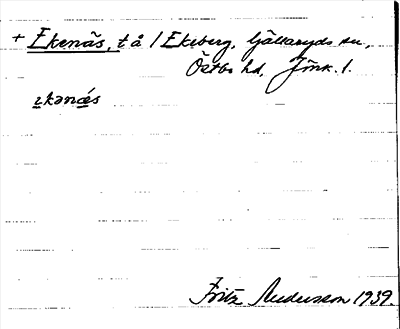 + Ekenäs, t å / Ekeberg, Gällaryds sn,
Östbo hd, Jönk. l.
ekənäs
Fritz Andersson 1939.